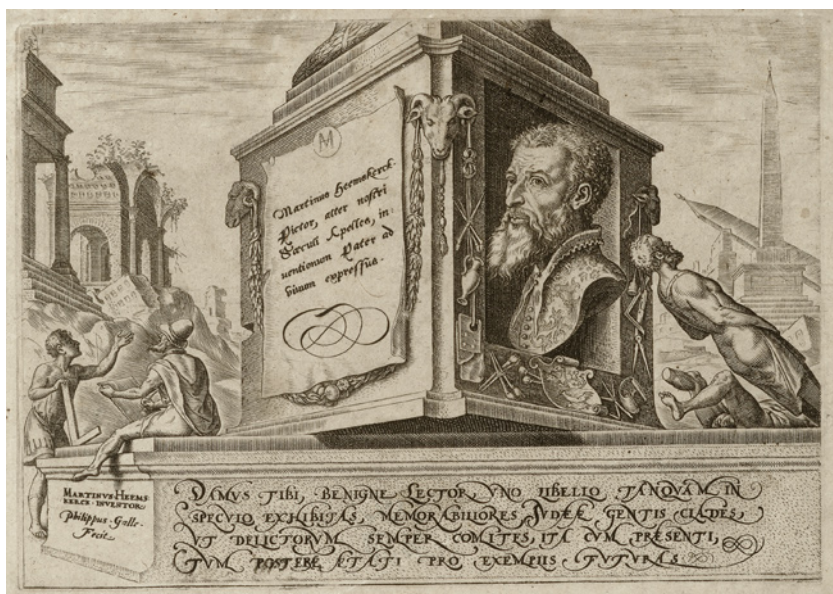 M
Martinus Heemskerck
Pictor, alter nostri
Sæculi Apelles, in:
uentionum Pater ad
viuum expressus.
MARTINVS HEEMS
KERCK INVENTOR
Philippus Galle
Fecit
DAMVS TIBI, BENIGNE LECTOR, VNO LIBELLO TANQVAM IN
SPECVLO EXHIBITAS, MEMORABILIORES IVDÆÆ GENTIS CLADES,
VT DELICTORVM SEMPER COMITES, ITA CVM PRÆSENTI,
TVM POSTERÆ ÆTATI PRO EXEMPLIS FVTVRAS